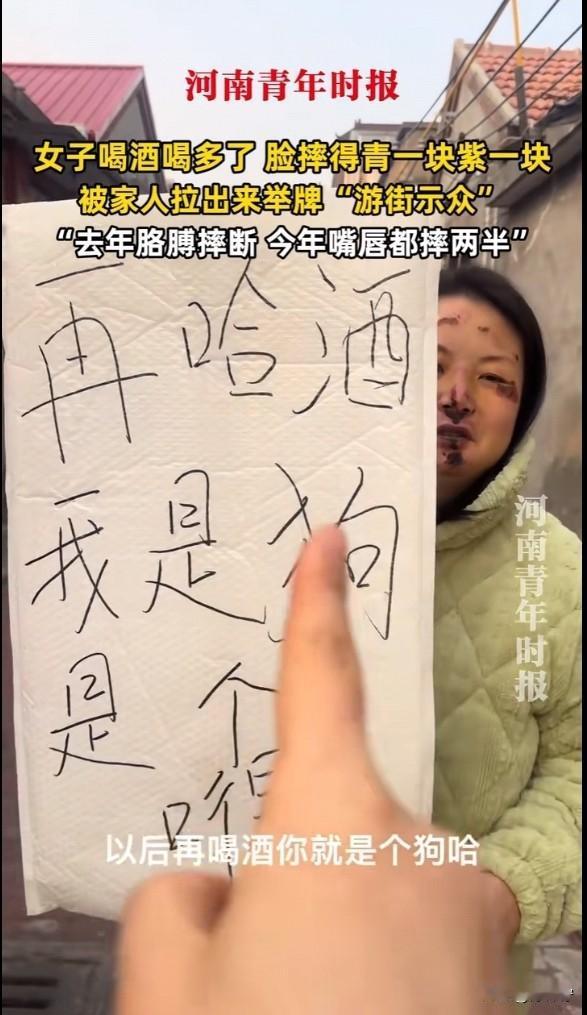 河南青年时报
女子喝酒喝多了 脸摔得青一块紫一块
被家人拉出来举牌“游街示众”
“去年胳膊摔断 今年嘴唇都摔两半”
再哈酒
我是狗
是个
以后再喝酒你就是个狗哈
河南青年时报